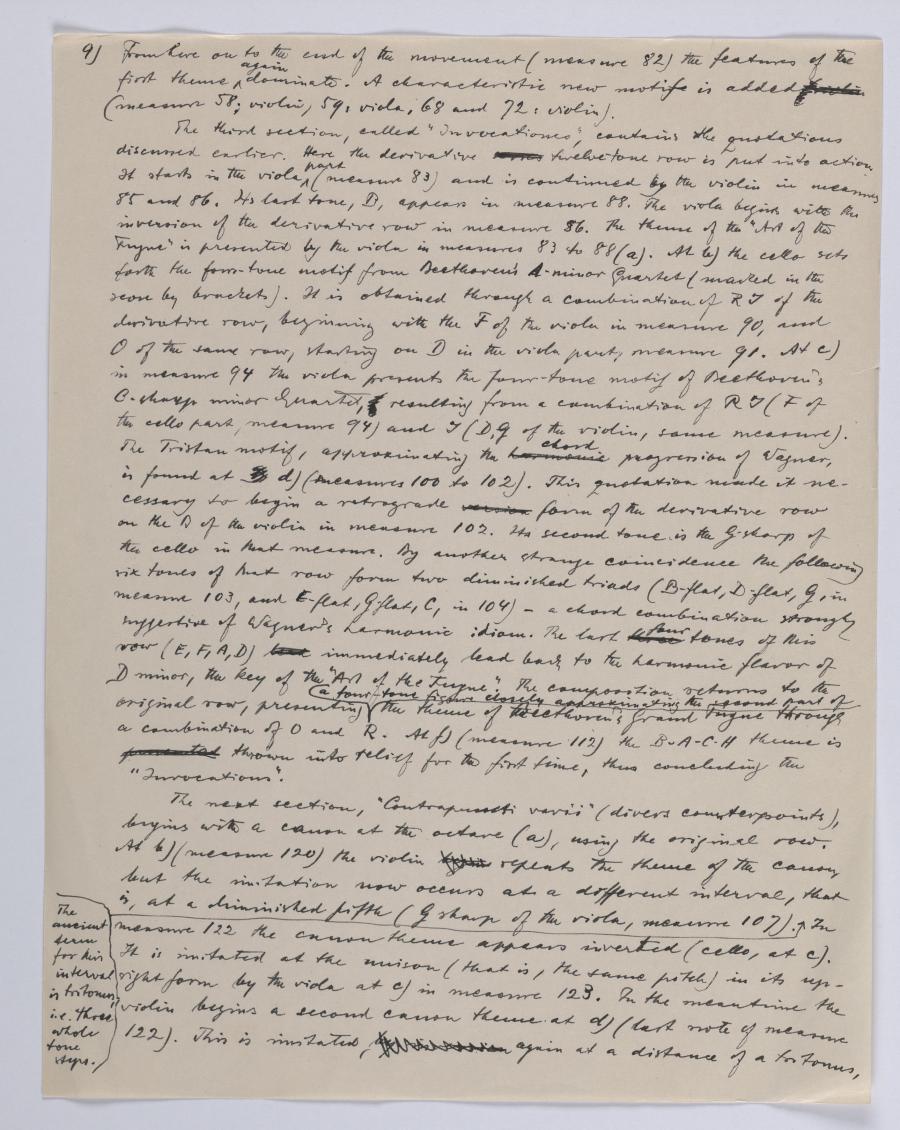 9) From here on to the end of the movement (measure 82) the features of the
again
first theme dominate. A characteristic new motif is added
(measure 58: violin, 59: viola, 68 and 72: violin).
The third section, called "Invocationes", contains the quotations
discussed earlier. Here the derivative twelvetone row is put into action.
part
It starts in the viola (measure 83) and is continued by the violin in measures
85 and 86. Its last tone, B, appears in measure 88. The viola begins with the
inversion of the derivative row in measure 86. The theme of the "Art of the
Fugue" is presented by the viola in measures 83 to 88 (a). At b) the cello sets
forth the four-tone motif from Beethoven's A-minor Quartet (marked in the
score by brackets). It is obtained through a combination of R I of the
derivative row, beginning with the F of the viola in measure 90, and
O of the same row, starting on D in the viola part, measure 91. At c)
in measure 94 the viola presents the four-tone motif of Beethoven's
C-sharp minor Quartet, resulting from a combination of R I (F of
the cello part, measure 94) and I (D, G of the violin, same measure).
chord
The Tristan motif, approximating the harmonic progression of Wagner,
is found at d) (measures 100 to 102). This quotation made it ne-
cessary to begin a retrograde version form of the derivative row
on the B of the violin in measure 102. Its second tone is the G-sharp of
the cello in that measure. By another strange coincidence the following
six tones of that row form two diminished triads (B-flat, D-flat, G, in
measure 103, and E-flat, G-flat, C, in 104) - a chord combination strongly
suggestive of Wagner's harmonic idiom. The last three four tones of this
row (E, F, A, D) immediately lead back to the harmonic flavor of
D minor, the key of the "Art of the Fugue". The composition returns to the
(a four-tone figure closely approximating the second part of
original row, presenting the theme of Beethoven's Grand Fugue through
a combination of O and R. At f) (measure 112) the B-A-C-H theme is
presented thrown into relief for the first time, thus concluding the
"Invocations".
The next section, "Contrapuncti varii" (divers counterpoints),
begins with a canon at the octave (a), using the original row.
At b) (measure 120) the violin repeats the theme of the canon,
but the imitation now occurs at a different interval, that
is, at a diminished fifth (G sharp of the viola, measure 107). In
The
ancient
term
for this
interval
is tritonus,
i.e. three
whole
tone
steps.
measure 122 the canon theme appears inverted (cello, at c).
It is imitated at the unison (that is, the same pitch) in its up-
right form by the viola at c) in measure 123. In the meantime the
violin begins a second canon theme at d) (last note of measure
122). This is imitated, again at a distance of a tritonus,